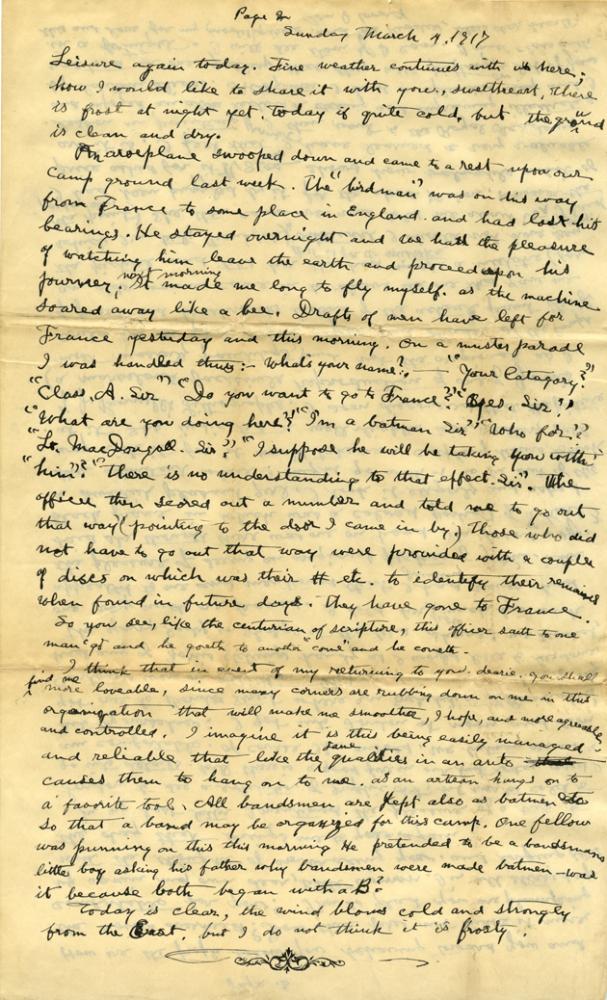 Page 2
Sunday March 4, 1917
Leisure again today. Fine weather continues with us here;
how I would like to share it with you, sweetheart, There
is frost at night yet. Today is quite cold, but the ground
is clean and dry.
An aroeplane swooped down and came to a rest upon our
camp ground last week. The "birdman" was on his way
from France to some place in England. and had lost his
bearings. He stayed overnight and we had the pleasure
of watching him leave the earth and proceed upon his
journey, next morning. It made me long to fly myself. as the machine
soared away like a bee. Drafts of men have left for
France yesterday and this morning. On a muster parade
I was handled thus:- Whats your name?. — "Your Catagory?"
"Class. A. Sir" "Do you want to go to France?" "Yes, Sir!"
"What are you doing here?" "I'm a batman Sir" "Who for"?
"Lt. MacDougall. Sir" "I suppose he will be taking you with
him"? "There is no understanding to that effect. Sir". The
officer then scored out a number and told me to go out
that way (pointing to the door I came in by.) Those who did
not have to go out that way were provided with a couple
of discs on which was their # etc. to identify their remains
when found in future days. They have gone to France.
So you see, like the centurian of scripture, this officer saith to one
man "go" and he goeth to another "come" and he cometh.
I think that in event of my returning to you. dearie. you shall
find me more loveable, since many corners are rubbing down on me in this
organization that will make me smoother, I hope, and more agreeable,
and controlled. I imagine it is this being easily managed
and reliable that like the same qualities in an auto
causes them to hang on to me. as an artisan hangs on to
a favorite tool. All bandsmen are kept also as batmen
so that a band may be organized for this camp. One fellow
was punning on this this morning He pretended to be a bandsmans
little boy asking his father why bandsmen were made batmen - was
it because both began with a B?
Today is clear, the wind blows cold and strongly
from the East, but I do not think it is frosty.